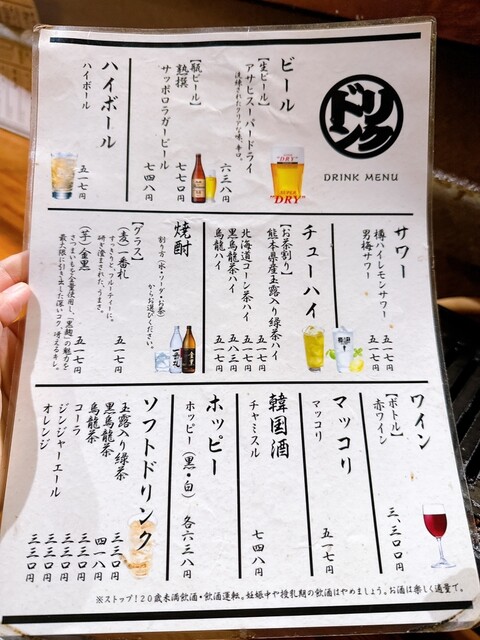 ドリンク
DRINK MENU
ビール
【生ビール】
アサヒスーパードライ 六三八円
洗練されたクリアな味、辛口。
【瓶ビール】
熟撰 七七〇円
サッポロラガービール 七四八円
ハイボール
ハイボール 五一七円
サワー
樽ハイレモンサワー 五一七円
男梅サワー 五一七円
チューハイ
【お茶割り】
熊本県産玉露入り緑茶ハイ 五一七円
北海道コーン茶ハイ 五一七円
黒烏龍茶ハイ 五八三円
烏龍ハイ 五一七円
焼酎
割り方（水・ソーダ・お茶）
からお選びください。
【グラス】
（麦）一番札 五一七円
すっきりと、フルーティーに。
研ぎ澄まされた、うまさ。
（芋）金黒 五一七円
さつまいもを全量使用し、「黒麹」の魅力を
最大限に引き出した深いコク、冴えるキレ。
ワイン
【ボトル】
赤ワイン 三、三〇〇円
マッコリ
マッコリ 五一七円
韓国酒
チャミスル 七四八円
ホッピー
ホッピー（黒・白） 各六三八円
ソフトドリンク
玉露入り緑茶 三三〇円
黒烏龍茶 四一八円
烏龍茶 三三〇円
コーラ 三三〇円
ジンジャーエール 三三〇円
オレンジ 三三〇円
※ストップ！20歳未満飲酒・飲酒運転。妊娠中や授乳期の飲酒はやめましょう。お酒は楽しく適量で。